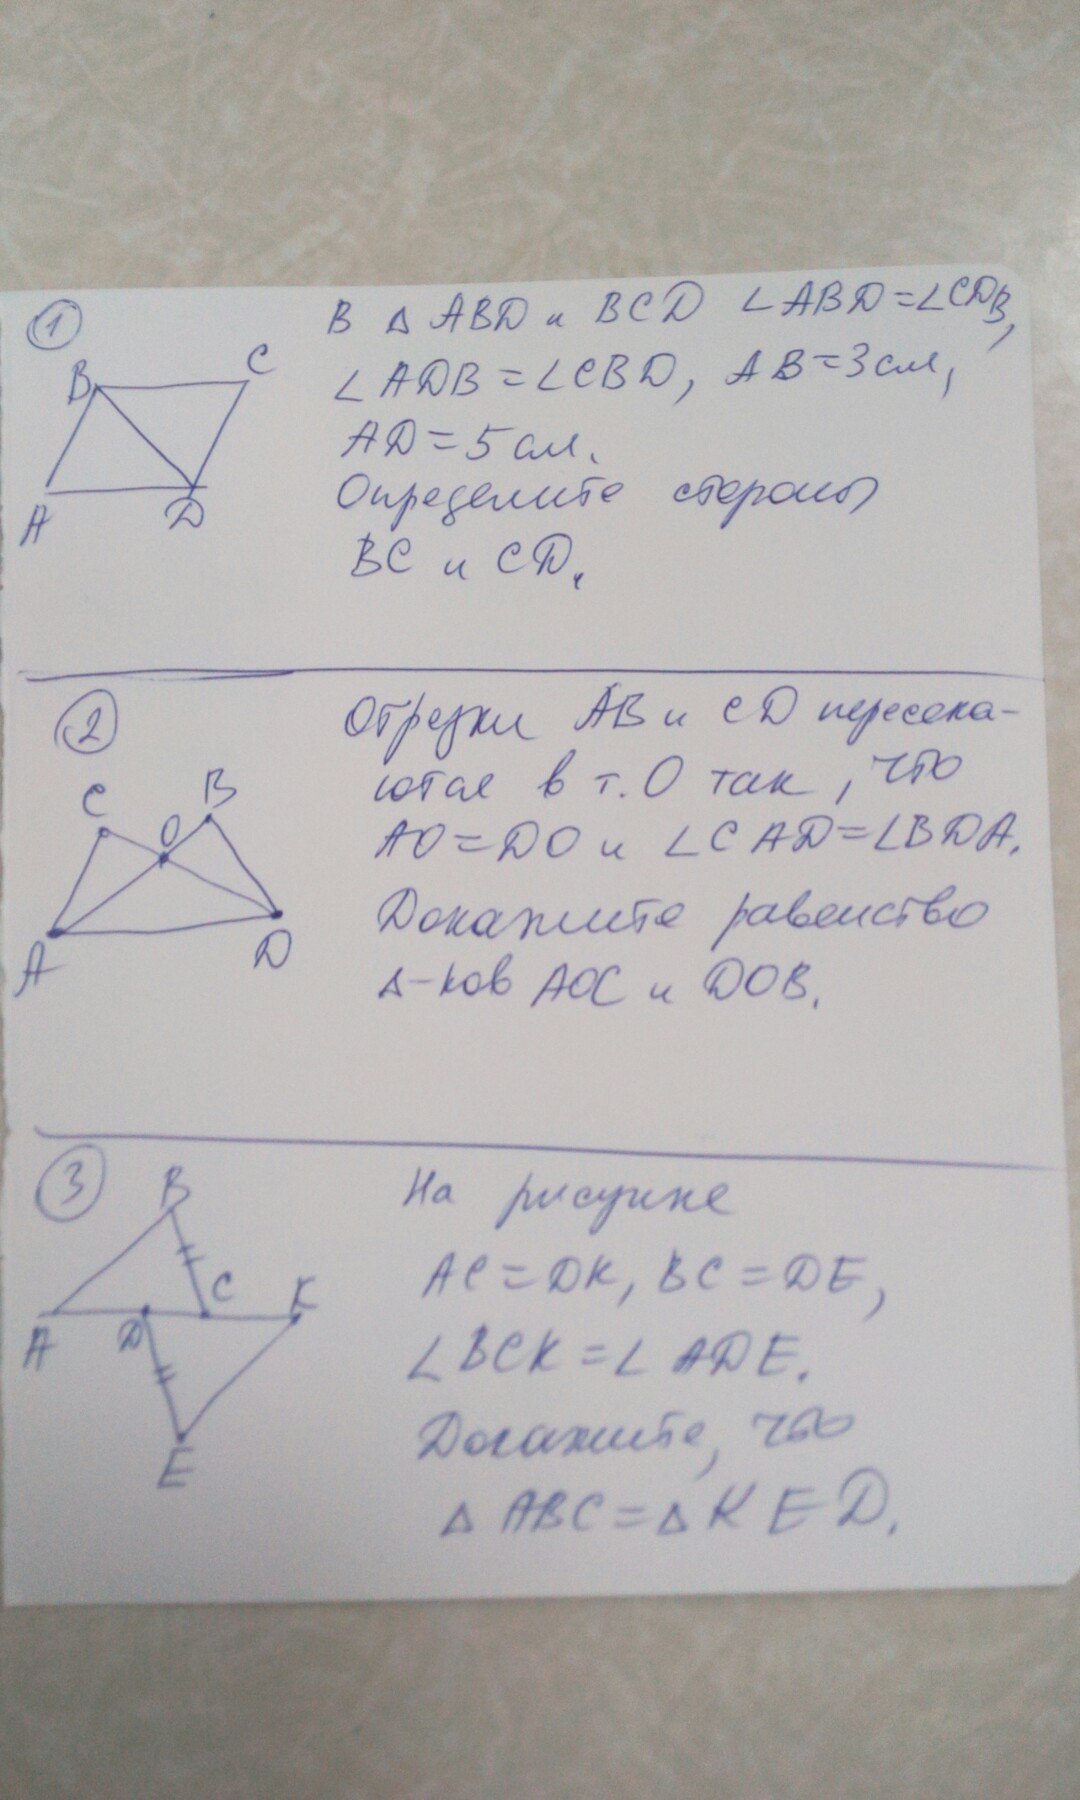 1
B C A D
В ∆ ABD и BCD ∠ABD=∠CDB,
∠ADB=∠CBD, AB=3см,
AD=5см.
Определите стороны
BC и CD.
2
C O B A D
Отрезки AB и CD пересека-
ются в т.О так, что
AO=DO и ∠CAD=∠BDA.
Докажите равенство
∆-ков AOC и DOB.
3
B C K A D E
На рисунке
AC=DK, BC=DE,
∠BCK=∠ADE.
Докажите, что
∆ABC=∆KED.